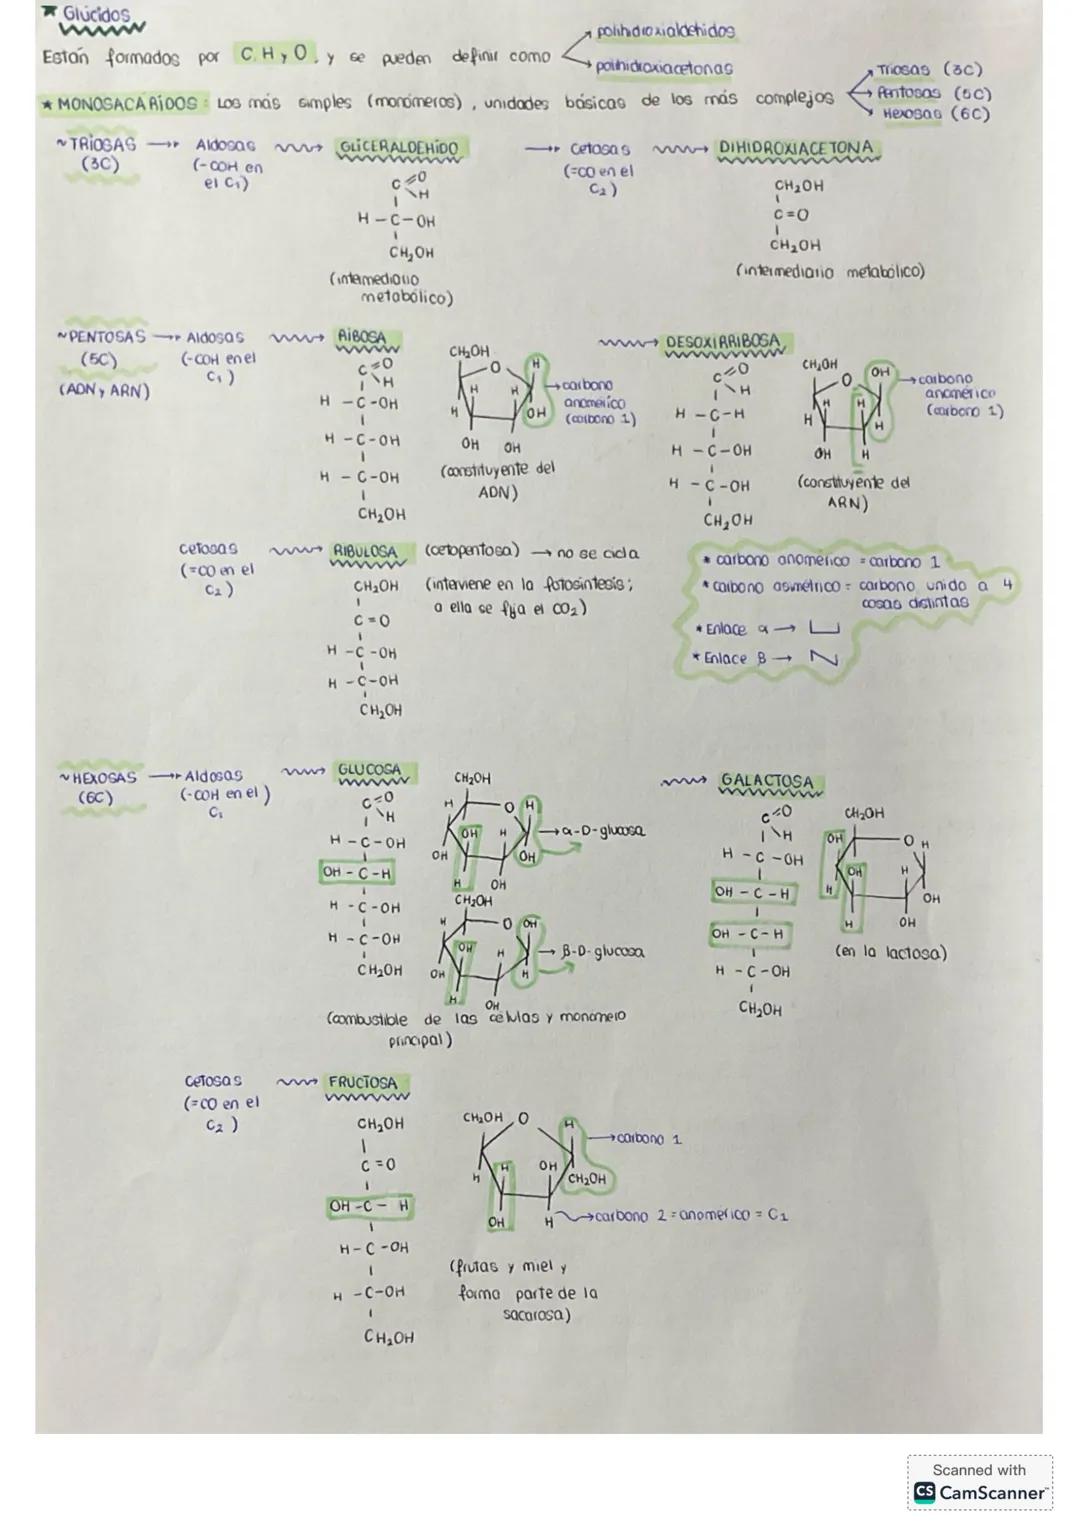 ★ Glúcidos
Están formados por C, H y O, y se pueden definir como
polihidroxialdehidos
polihidroxiacetonas
★ MONOSACÁRIDOS: Los más simples (monómeros), unidades básicas de los más complejos
Triosas (3C)
Pentosas (5C)
Hexosas (6C)
~TRIOSAS → Aldosas → GLICERALDEHÍDO
(3C)
(-COH en
el C₁)
C=O
H
H-C-OH
CH₂OH
(intermediario
metabólico)
→ Cetosas → DIHIDROXIACETONA
(=CO en el
C₂)
CH₂OH
C=O
CH₂OH
(intermediario metabólico)
~PENTOSAS → Aldosas → RIBOSA
(5C)
(-COH en el
C₁)
(ADN y ARN)
C=O
H
H-C-OH
H-C-OH
H-C-OH
CH₂OH
CH₂OH
O
H
H
H
H
OH
OH
OH
→ carbono
anomérico
(carbono 1)
(constituyente del
ADN)
→ DESOXIRRIBOSA
C=O
H
H-C-H
H-C-OH
H-C-OH
CH₂OH
CH₂OH
O
OH
H
H
H
H
OH
H
→ carbono
anomérico
(carbono 1)
(constituyente del
ARN)
Cetosas → RIBULOSA (cetopentosa) → no se cicla
(=CO en el
C₂)
(interviene en la fotosíntesis;
a ella se fija el CO₂)
CH₂OH
C=O
H-C-OH
H-C-OH
CH₂OH
* carbono anomérico = carbono 1
* carbono asimétrico = carbono unido a 4
cosas distintas
* Enlace α →
* Enlace β →
~HEXOSAS → Aldosas → GLUCOSA
(6C)
(-COH en el)
C₁
C=O
H
H-C-OH
OH-C-H
H-C-OH
H-C-OH
CH₂OH
CH₂OH
H
O
H
OH
H
OH
OH
H
OH
→ α-D-glucosa
CH₂OH
H
O
OH
OH
H
OH
H
H
OH
→ β-D-glucosa
(combustible de las células y monómero
principal)
→ GALACTOSA
C=O
H
H-C-OH
OH-C-H
OH-C-H
H-C-OH
CH₂OH
CH₂OH
OH
O
H
OH
H
H
OH
H
OH
(en la lactosa)
Cetosas → FRUCTOSA
(=CO en el
C₂)
CH₂OH
C=O
OH-C-H
H-C-OH
H-C-OH
CH₂OH
CH₂OH
O
H
→ carbono 1
H
H
OH
CH₂OH
OH
H
→ carbono 2 = anomérico = C₁
(frutas y miel y
forma parte de la
sacarosa)
Scanned with
CS CamScanner